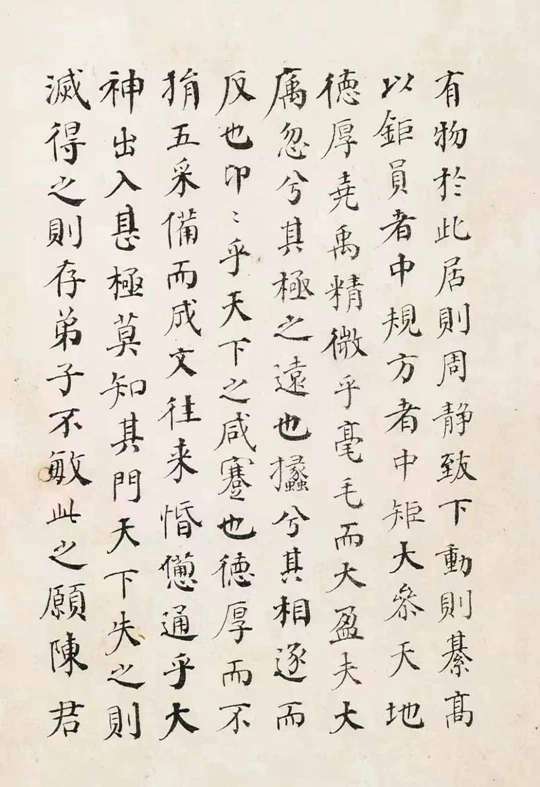 有物於此居則周静致下動則綦髙
以鉅員者中規方者中矩大叅天地
徳厚堯禹精微乎毫毛而大盈夫大
庽忽兮其極之遠也攭兮其相逐而
反也卬〻乎天下之咸蹇也徳厚而不
捐五采備而成文往来惛憊通乎大
神出入甚極莫知其門天下失之則
滅得之則存弟子不敏此之願陳君